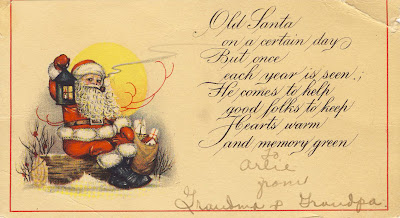 Old Santa
on a certain day
But once
each year is seen.;
He comes to help
good folks to keep
Hearts warm
and memory green
to
Artie
from
Grandma & Grandpa.